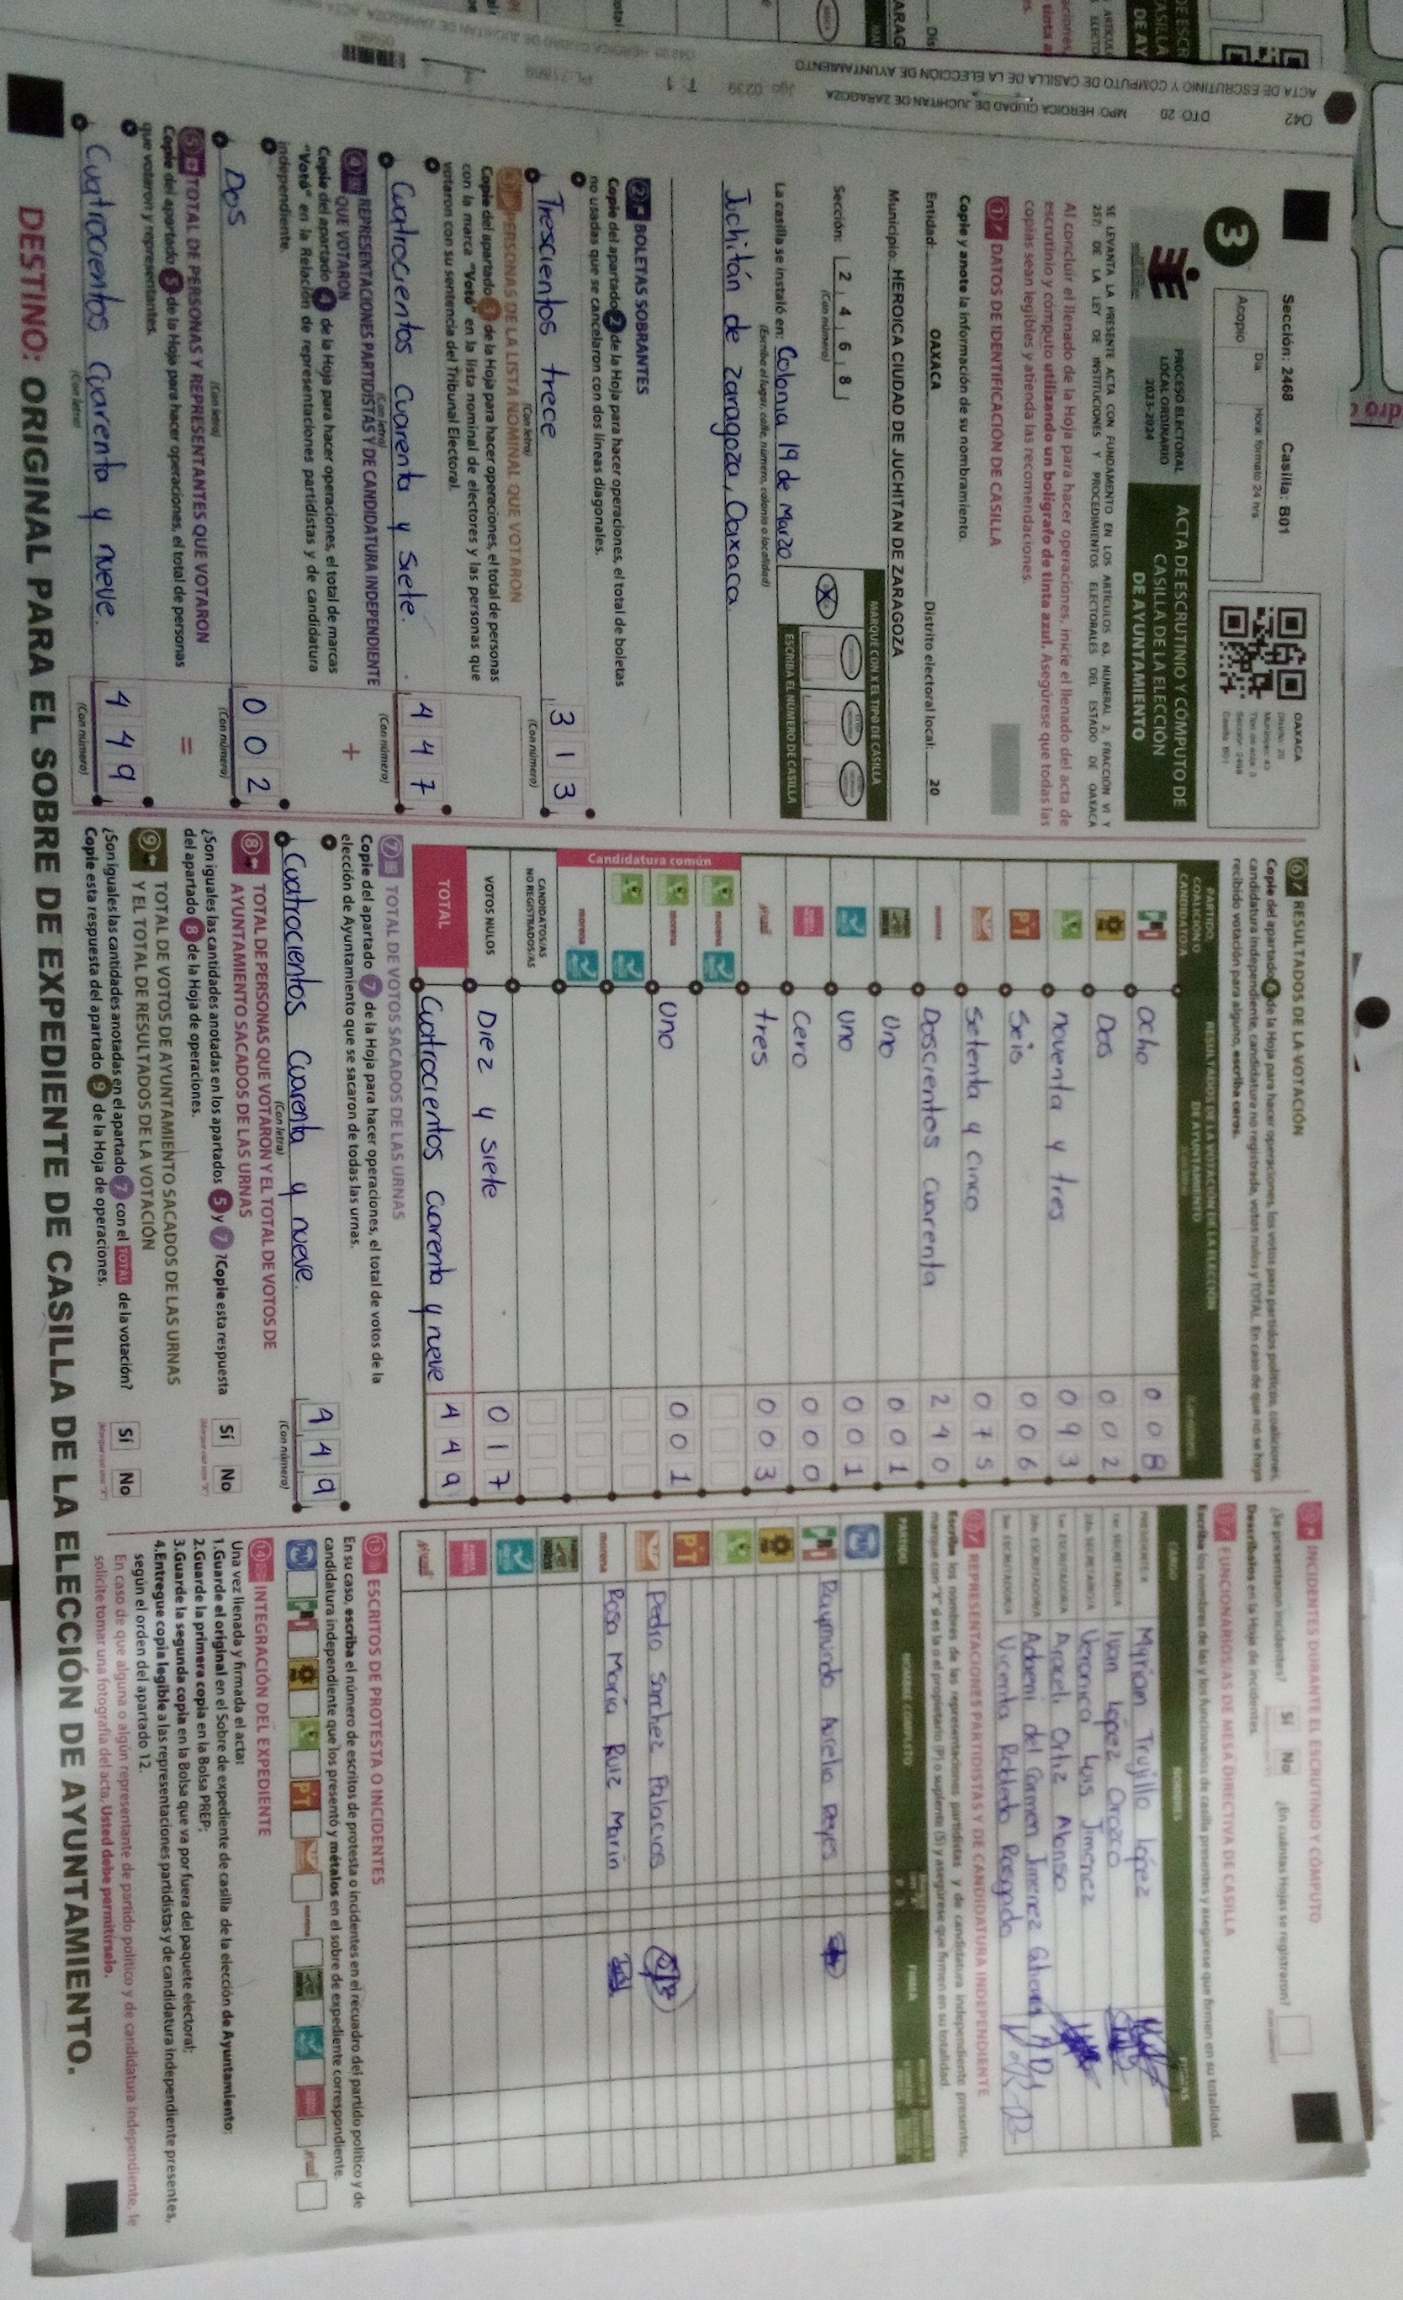 Sección: 2468 Casilla: B01
Día Hora: formato 24 hrs
Acopio
3
OAXACA
PROCESO ELECTORAL
LOCAL ORDINARIO
2023-2024
ACTA DE ESCRUTINIO Y CÓMPUTO DE
CASILLA DE LA ELECCIÓN
DE AYUNTAMIENTO
SE LEVANTA LA PRESENTE ACTA CON FUNDAMENTO EN LOS ARTÍCULOS 63, NUMERAL 2, FRACCIÓN VI Y
257; DE LA LEY DE INSTITUCIONES Y PROCEDIMIENTOS ELECTORALES DEL ESTADO DE OAXACA
Al concluir el llenado de la Hoja para hacer operaciones, inicie el llenado del acta de
escrutinio y cómputo utilizando un bolígrafo de tinta azul. Asegúrese que todas las
copias sean legibles y atienda las recomendaciones.
1 DATOS DE IDENTIFICACIÓN DE CASILLA
Copie y anote la información de su nombramiento.
Entidad: OAXACA Distrito electoral local: 20
Municipio: HEROICA CIUDAD DE JUCHITAN DE ZARAGOZA
Sección: 2 4 6 8
(Con número)
MARQUE CON X EL TIPO DE CASILLA
ESCRIBA EL NÚMERO DE CASILLA
La casilla se instaló en: Colonia 19 de Marzo
(Escriba el lugar, calle, número, colonia o localidad)
Juchitán de Zaragoza, Oaxaca
2 BOLETAS SOBRANTES
Copie del apartado 2 de la Hoja para hacer operaciones, el total de boletas
no usadas que se cancelaron con dos líneas diagonales.
Trescientos trece 3 1 3
(Con letra) (Con número)
3 PERSONAS DE LA LISTA NOMINAL QUE VOTARON
Copie del apartado 3 de la Hoja para hacer operaciones, el total de personas
con la marca "Votó" en la lista nominal de electores y las personas que
votaron con su sentencia del Tribunal Electoral.
Cuatrocientos cuarenta y siete. 4 4 7
(Con letra) (Con número)
4 REPRESENTACIONES PARTIDISTAS Y DE CANDIDATURA INDEPENDIENTE
QUE VOTARON
Copie del apartado 4 de la Hoja para hacer operaciones, el total de marcas
"Votó" en la Relación de representaciones partidistas y de candidatura
independiente.
+
Dos 0 0 2
(Con letra) (Con número)
5 TOTAL DE PERSONAS Y REPRESENTANTES QUE VOTARON
Copie del apartado 5 de la Hoja para hacer operaciones, el total de personas
que votaron y representantes.
=
Cuatrocientos cuarenta y nueve. 4 4 9
(Con letra) (Con número)
6 RESULTADOS DE LA VOTACIÓN
Copie del apartado 6 de la Hoja para hacer operaciones, los votos para partidos políticos, coaliciones,
candidatura independiente, candidatura no registrada, votos nulos y TOTAL. En caso de que no se haya
recibido votación para alguno, escriba ceros.
PARTIDO,
COALICIÓN O
CANDIDATO/A
RESULTADOS DE LA VOTACIÓN DE LA ELECCIÓN
DE AYUNTAMIENTO
ocho 0 0 8
Dos 0 0 2
noventa y tres 0 9 3
PT seis 0 0 6
setenta y cinco 0 7 5
Doscientos cuarenta 2 4 0
Uno 0 0 1
Uno 0 0 1
Cero 0 0 0
tres 0 0 3
Candidatura común
morena
morena Uno 0 0 1
morena
CANDIDATOS/AS
NO REGISTRADOS/AS
VOTOS NULOS Diez y siete 0 1 7
TOTAL Cuatrocientos cuarenta y nueve 4 4 9
7 TOTAL DE VOTOS SACADOS DE LAS URNAS
Copie del apartado 7 de la Hoja para hacer operaciones, el total de votos de la
elección de Ayuntamiento que se sacaron de todas las urnas.
Cuatrocientos cuarenta y nueve. 4 4 9
(Con letra) (Con número)
8 TOTAL DE PERSONAS QUE VOTARON Y EL TOTAL DE VOTOS DE
AYUNTAMIENTO SACADOS DE LAS URNAS
¿Son iguales las cantidades anotadas en los apartados 5 y 7 ?Copie esta respuesta
del apartado 8 de la Hoja de operaciones.
Sí No
9 TOTAL DE VOTOS DE AYUNTAMIENTO SACADOS DE LAS URNAS
Y EL TOTAL DE RESULTADOS DE LA VOTACIÓN
¿Son iguales las cantidades anotadas en el apartado 7 con el TOTAL de la votación?
Copie esta respuesta del apartado 9 de la Hoja de operaciones.
Sí No
INCIDENTES DURANTE EL ESCRUTINIO Y CÓMPUTO
¿Se presentaron incidentes? Sí No ¿En cuántas Hojas se registraron?
Descríbalos en la Hoja de incidentes.
FUNCIONARIOS/AS DE MESA DIRECTIVA DE CASILLA
Escriba los nombres de las y los funcionarios de casilla presentes y asegúrese que firmen en su totalidad.
CARGO NOMBRES FIRMAS
PRESIDENTE/A Myrian Trujillo López
1er. SECRETARIO/A Ivan López Orozco
2do. SECRETARIO/A Veronica Luis Jimenez
1er. ESCRUTADOR/A Araceli Ortiz Alonso
2do. ESCRUTADOR/A del Carmen Jimenez
3er. ESCRUTADOR/A Vicenta
REPRESENTACIONES PARTIDISTAS Y DE CANDIDATURA INDEPENDIENTE
Escriba los nombres de las representaciones partidistas y de candidatura independiente presentes,
marque con "X" si es la o el propietario (P) o suplente (S) y asegúrese que firmen en su totalidad.
PARTIDO NOMBRE COMPLETO FIRMA
PAN Raymundo Aurelio Reyes
PT
Pedro Sanchez Palacios
morena Rosa Maria Ruiz Marin
13 ESCRITOS DE PROTESTA O INCIDENTES
En su caso, escriba el número de escritos de protesta o incidentes en el recuadro del partido político y de
candidatura independiente que los presentó y métalos en el sobre de expediente correspondiente.
14 INTEGRACIÓN DEL EXPEDIENTE
Una vez llenada y firmada el acta:
1.Guarde el original en el Sobre de expediente de casilla de la elección de Ayuntamiento;
2.Guarde la primera copia en la Bolsa PREP;
3.Guarde la segunda copia en la Bolsa que va por fuera del paquete electoral;
4.Entregue copia legible a las representaciones partidistas y de candidatura independiente presentes,
según el orden del apartado 12.
En caso de que alguna o algún representante de partido político y de candidatura independiente, le
solicite tomar una fotografía del acta, Usted debe permitírselo.
DESTINO: ORIGINAL PARA EL SOBRE DE EXPEDIENTE DE CASILLA DE LA ELECCIÓN DE AYUNTAMIENTO.
ACTA DE ESCRUTINIO Y CÓMPUTO DE CASILLA DE LA ELECCIÓN DE AYUNTAMIENTO
042 DTO: 20 MPO: HEROICA CIUDAD DE JUCHITAN DE ZARAGOZA